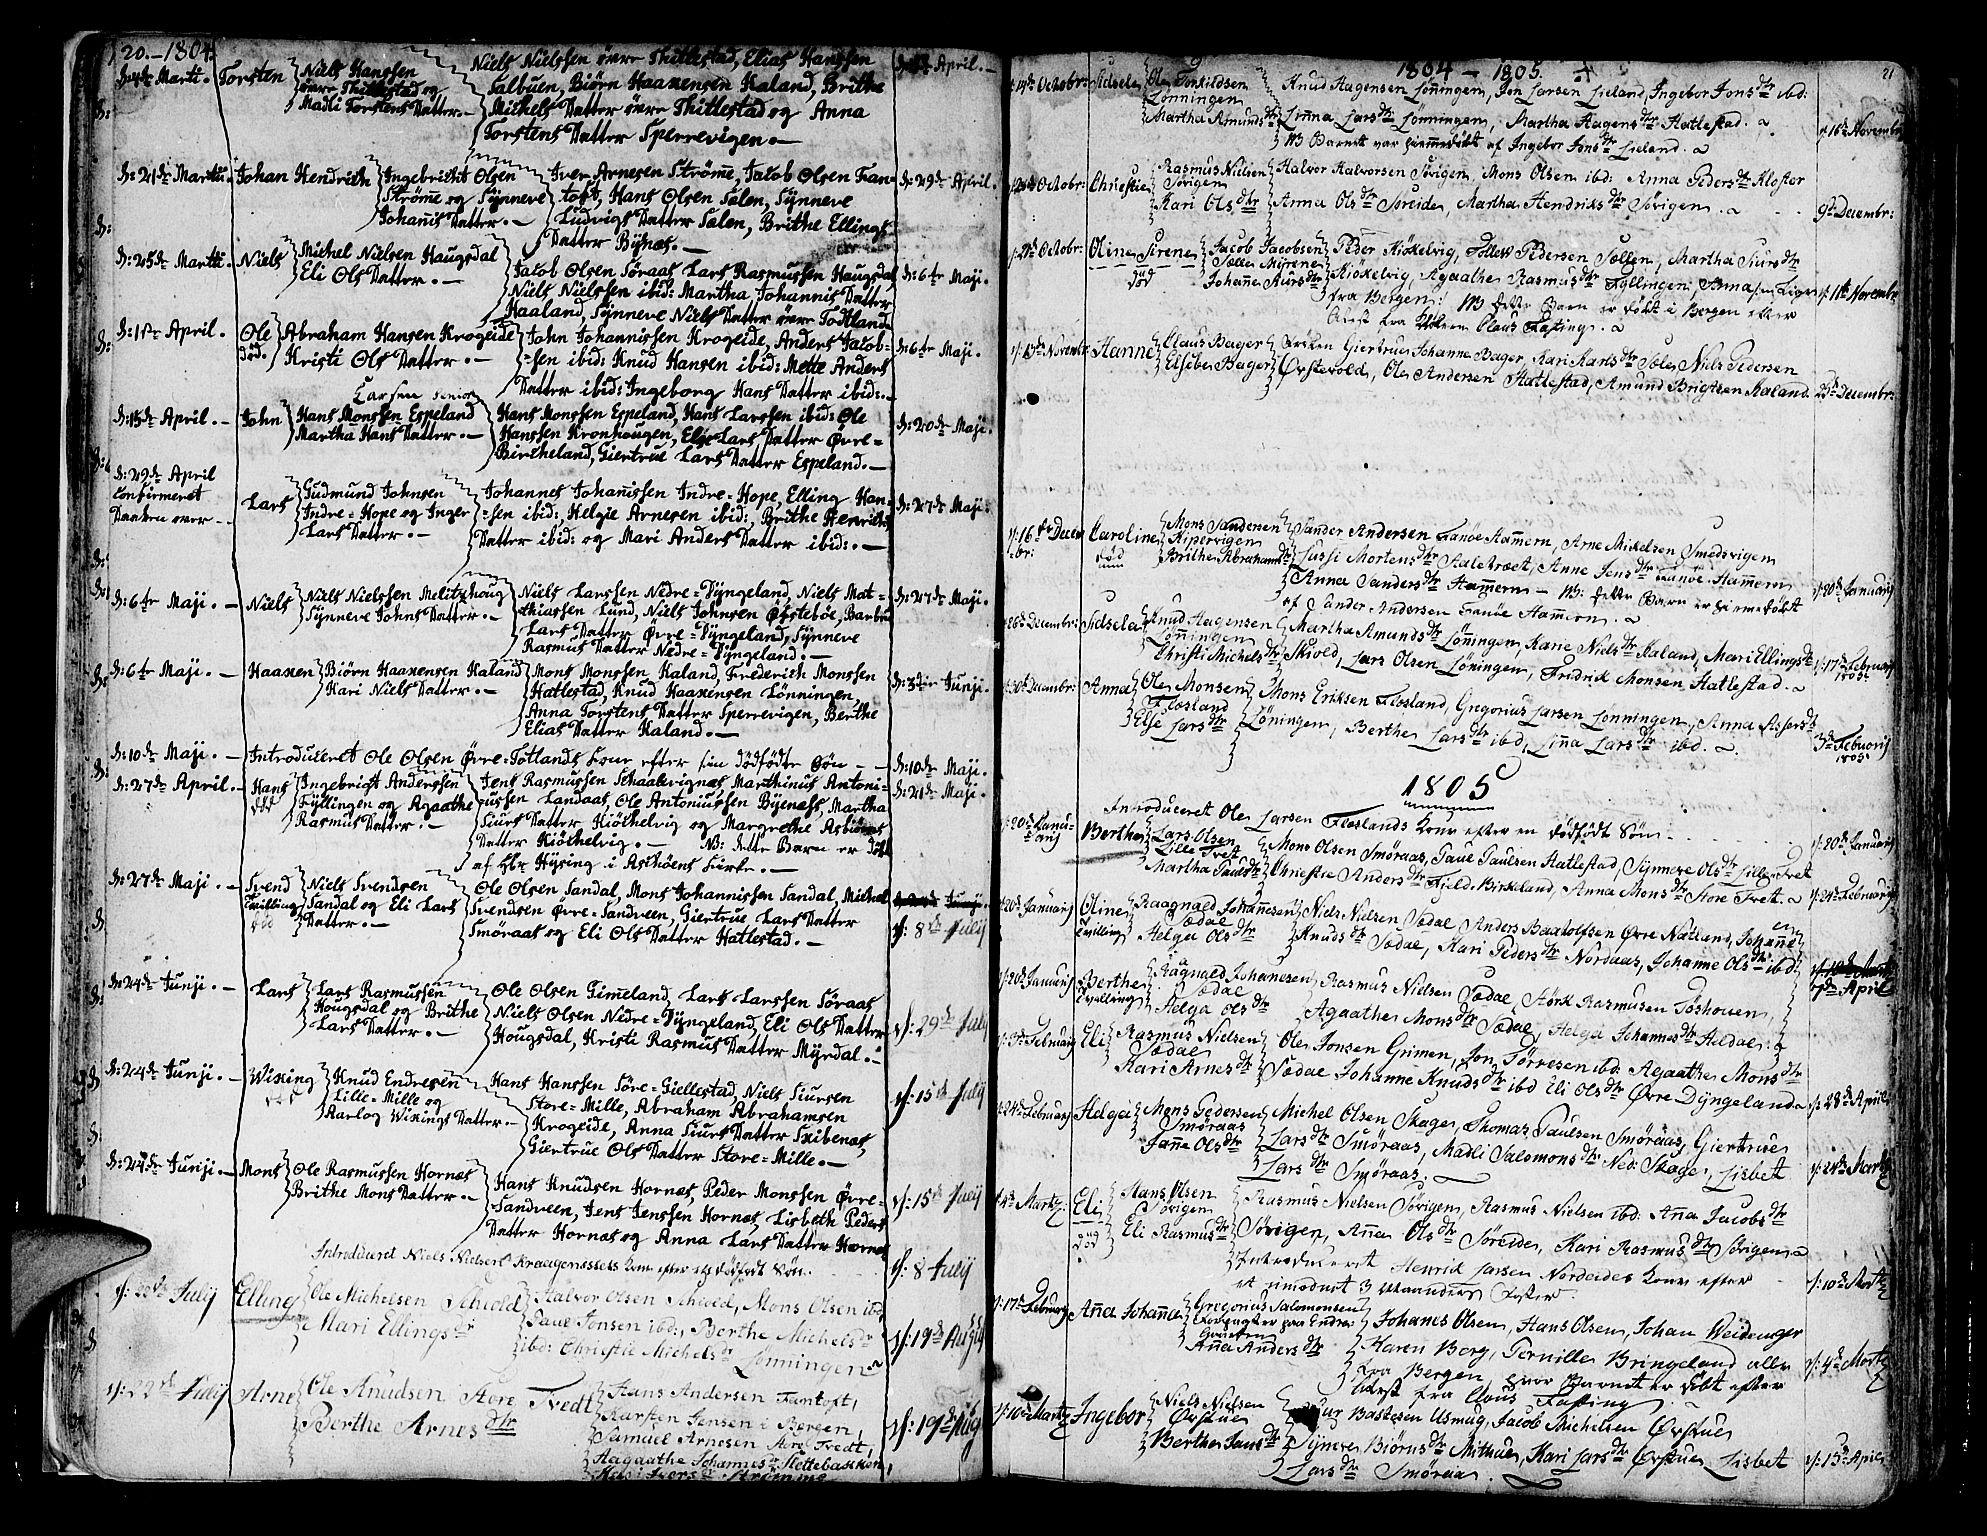 20.-1804.
d: 4de Marti. Torsten Niels Hanssen
övre Thittlestad og
Madli Torstens Datter.-
Niels Nielssen övre Thittlestad, Elias Hanssen
Salbuen, Biörn Haaxensen Kaland, Brithe
Michels Datter övre Thittlestad og Anna
Torstens Datter Sperrevigen.-
April.-
d: 21de Martii. Johan Hendrich Ingebricht Olsen
Strömme og Synneve
Johannis Datter.-
Iver Arnesen Strömme, Jacob Olsen Fan-
toft, Hans Olsen Salen, Synneve
Ludvigs Datter Salen, Brithe Ellings
Datter Bynæs.-
d: 29de April.
d: 25de Martii Niels Michel Nielsen Haugsdal
Eli Ols Datter.-
Jacob Olsen Söraas, Lars Rasmussen Haugsdal
Niels Nielssen ibid: Martha Johannis Datter
Haaland, Synneve Niels Datter övre Todtland
d: 6te Maji.
d: 1ste April. Ole
död. Abraham Hansen Krogeide
Kristi Ols Datter.-
John Johannissen Krogeide, Anders Jacob-
sen ibid: Knud Hansen ibid: Mette Anders
Datter ibid: Ingeborg Hans Datter ibid:-
d: 6te Maji.
Larsen senior
d: 15de April.- John Hans Monssen Espeland
Martha Hans Datter.-
Hans Monssen Espeland, Hans Larssen ibid: Ole
Hanssen Kronhougen, Elie Lars Datter Övre-
Bircheland, Giertrue Lars Datter Espeland.-
d: 20de Maji.
d: 29de April
Confirmeret
Daaben over- Lars Gudmund Johnsen
Indre-Hope og Inger
Lars Datter.-
Johannes Johannissen Indre-Hope, Elling Han-
sen ibid: Helgie Arnesen ibid: Brithe Henrichs
Datter ibid: og Mari Anders Datter ibid:-
d: 27de Maji.
d: 6te Maji.- Niels Niels Nielssen Melitzhoug
Synneve Johns Datter.-
Niels Larssen Nedre-Dyngeland, Niels Mat-
thiassen Lund, Niels Johnsen Övsteböe, Barbru
Lars Datter Övre-Dyngeland, Synneve
Rasmus Datter Nedre-Dyngeland.-
d: 27de Maji.
d: 6te Maji.- Haaxen Biörn Haaxensen Kaland
Kari Niels Datter.-
Mons Monssen Kaland, Frederich Monssen
Hattestad, Knud Haaxensen Lönningen,
Anna Torstens Datter Sperrevigen, Berthe
Elias Datter Kaland.-
d: 3die Junji.
d: 10de Maji.- Introduceret Ole Olsen Övre-Totlands Kone efter sin dödfödte Sön-
d: 10de Maji.
d: 27de April.- Hans Ingebrigt Anderssen
Fyllingen og Agaathe
Rasmus Datter.-
Jens Rasmussen Schaalevignæs, Marthinus Antoni-
ussen Landaas, Ole Antoniussen Byenæss, Martha
Siurs Datter Kiöchelvig og Margrethe Asbiörns
Datter Kiöchelvig.- NB: dette Barn er döbt
af Hr Hysing i Aschöens Kirke.-
d: 21de Maji.
d: 27de Maji.- Svend
Tvilling
död Niels Svendsen
Sandal og Eli Lars
Datter.-
Ole Olsen Sandal, Mons Johannissen Sandal, Michel
Svendsen Övre-Sandveen, Giertrue Lars Datter
Smöraas og Eli Ols Datter Hattestad.-
d: 8de July
d: 24de Junji.- Lars Lars Rasmussen
Hougsdal og Brithe
Lars Datter.-
Ole Olsen Gimeland, Lars Larssen Söraas
Niels Olsen Nedre-Dyngeland, Eli Ols Datter
Hougsdal, Kristi Rasmus Datter Myrdal.-
d: 29de July
d: 24de Junji.- Wiking
död Knud Endresen
Lille-Mille og
Kari og Wikings Datter-
Hans Hanssen Söre-Giellestad, Niels Siursen
Store-Mille, Abraham Abrahamsen
Krogeide, Anna Siurs Datter Skibenæs,
Giertrue Ols Datter Store-Mille.-
d: 15de July
d: 24de Junji.- Mons Ole Rasmussen Hornæs
Brithe Mons Datter.-
Hans Knudsen Hornæs, Peder Monssen Övre-
Sandveen, Jens Jenssen Hornæs, Lisbeth Peders
Datter Hornæs og Anna Lars Datter Hornæs
d: 15de July
Introducerd Niels Nielsen Kraagenæssets Kone efter en dödfödt Sön.
d: 8 July
d: 20de July Elling Ole Michelsen Schiold
Mari Ellings dr
Halvor Olsen Schiold, Mons Olsen ibd
Paul Jonsen ibd:, Berthe Michelsdr
ibd: Christie Michelsdr Lonningen
d: 19de Aug
d: 22de July Arne Ole Knudsen Store Tvedt
Berthe Arnes dtr
Hans Andersen Fantoft,
Karsten Jensen i Bergen,
Samuel Arnesen Store Tvedt,
Aagaathe Johannesdr Slettebakken,
Kari Ivers dr Strömme
d: 19de Aug
1804 - 1805. 21
d: 14de Octobr: Sidsele Ole Torkildsen
Lonningen
Martha Amunds dtr
Knud Hagensen Lonningen, Jon Larsen Lieland, Ingebor Jons dtr ibd:
Linna Lars dtr Lonningen, Martha Hagens dtr Hatlestad.
NB Barnet var hiemmedöbt af Ingebor Jons dtr Lieland.
d: 16de Novembr
Octobr: Christie Rasmus Nielsen
Sörigen
Kari Ols dtr
Halvor Halvorsen Sörigen, Mons Olsen ibd: Anna Peders dtr Kloster
Anna Ols dtr Söreide, Martha Hendriks dtr Sörigen.
9de Decembr:
d: 21de Octobr: Oline Sirene
död Jacob Jacobsen
Sælle Myrene
Johanne Siurs dtr
Peder Kiökelvig, Follew Pedersen Sællen, Martha Siurs dtr
Kiökelvig, Agaathe Rasmus dtr Fyllingen, Anna
fra Bergen: NB dette Barn er födt i Bergen efter
Attest fra Klokren Claus Fasting.
d: 11te Novembr
d: 15de Novembr Hanne Claus Bager
Elsebe Bager
Fröken Giertrue Johanne Bager, Kari Karls dtr Sole, Niels Pedersen
Övstevold, Ole Andersen Hatlestad, Amund Brigtsen Kaland.
25de Decembr:
d: 16de Decem
br: Caroline
död Mons Sandersen
Kipervigen
Brithe Abrahams dtr
Sander Andersen Fanöe Hammern, Arne Mickelsen Smedsvigen
Sussi Mortens dtr Haletræet, Anne Jens dtr Fanöe Hammern
Anna Sanders dtr Hammern - NB: dette Barn er hiemedöbt
af Sander Andersen Fanöe Hammern.
d: 20de January
d: 26de Decembr: Sidsela Knud Hagensen
Lönningen
Christi Michels dtr
Martha Amunds dtr Lönningen, Karie Niels dtr Kaland, Mari Ellings dtr
Skiold, Lars Olsen Löningen, Fridrik Monsen Hatlestad.
d: 17de Februarij
1805.
d: 30de Decembr: Anna Ole Monsen
Flæsland
Else Lars dtr
Mons Eriksen Flæsland, Gregorius Larsen Lonningen, Anna Assers dtr
Löningen, Berthe Lars dtr ibd, Linna Lars dtr ibd.
3de Februarij
1805.
1805
Introduceret Ole Larsen Flæslands Kone efter en dödfödt Sön.
d: 20de Janu-
arij Berthe Lars Olsen
Lille Tvet
Martha Pauls dtr
Mons Olsen Smöraas, Paul Paulsen Hatlestad, Synneve Ols dtr Lille Tvet
Christie Anders dtr Field Birkeland, Anna Mons dtr Store Tvet.
d: 20de Januarij
d: 24de Februarij
d: 20de Januarij Oline
tvilling Raagnald Johannesen
Sædal
Helga Ols dtr
Niels Nielsen Sædal, Anders Baxtolfsen Övre Natland, Johanne
Knuds dtr Sædal, Kari Peders dtr Nordaas, Johanne Ols dtr ibd
7de April
d: 20de Januarij Berthe
tvilling Ragnald Johannesen
Sædal
Helga Ols dtr
Rasmus Nielsen Sædal, Störk Rasmusen Toshouen,
Agaathe Mons dtr Sædal, Helga Johannes dtr Heldal.
d: 3de Februarij Eli Rasmus Nielsen
Sædal
Kari Arnes dtr
Ole Jonsen Grimen, Jon Törresen ibd: Agaathe Mons dtr
Sædal Johanne Knuds dtr ibd Eli Ols dtr Övre Dyngeland
d: 28de April
d: 24de Februarij Helga Mons Pedersen
Smöraas
Janna Ols dtr
Michel Olsen Skage, Thomas Paulsen Smöraas, Giertrue
Lars dtr Smöraas, Madli Salomons dtr Ned: Skage, Lisbet
Lars dtr Smöraas.
d: 24de Martz
d: 4de Martz: Eli
död Hans Olsen
Sörigen
Eli Rasmus dtr
Rasmus Nielsen Sörigen, Rasmus Nielsen ibd: Anna Jacobs dtr
Sörigen, Anna Ols dtr Söreide, Kari Rasmus dtr Sörigen
Introduceret Henrik Larsen Nordeides Kone efter
et umodent 3 Maaneders Foster.
d: 10de Martz
d: 17de Februarij Anna Johanna Gregorius Salomonsen
Anna Anders dtr
Johannes Olsen, Hans Olsen, Johan Weidenger
Karen Berg, Pernille Bringeland alle
fra Bergen, hvor Barnet er födt efter
Attest fra Claus Fasting.
d: 4de Martz
d: 10de Martz Ingebor Niels Nielsen
Örstue
Berthe Jans dtr
Siur Bastesen Usmug, Jacob Michelsen Örstue
Synneve Biörns dtr Mithue, Kari Lars dtr Örstue, Lisbet
Lars dtr Smöraas.
d: 15de April